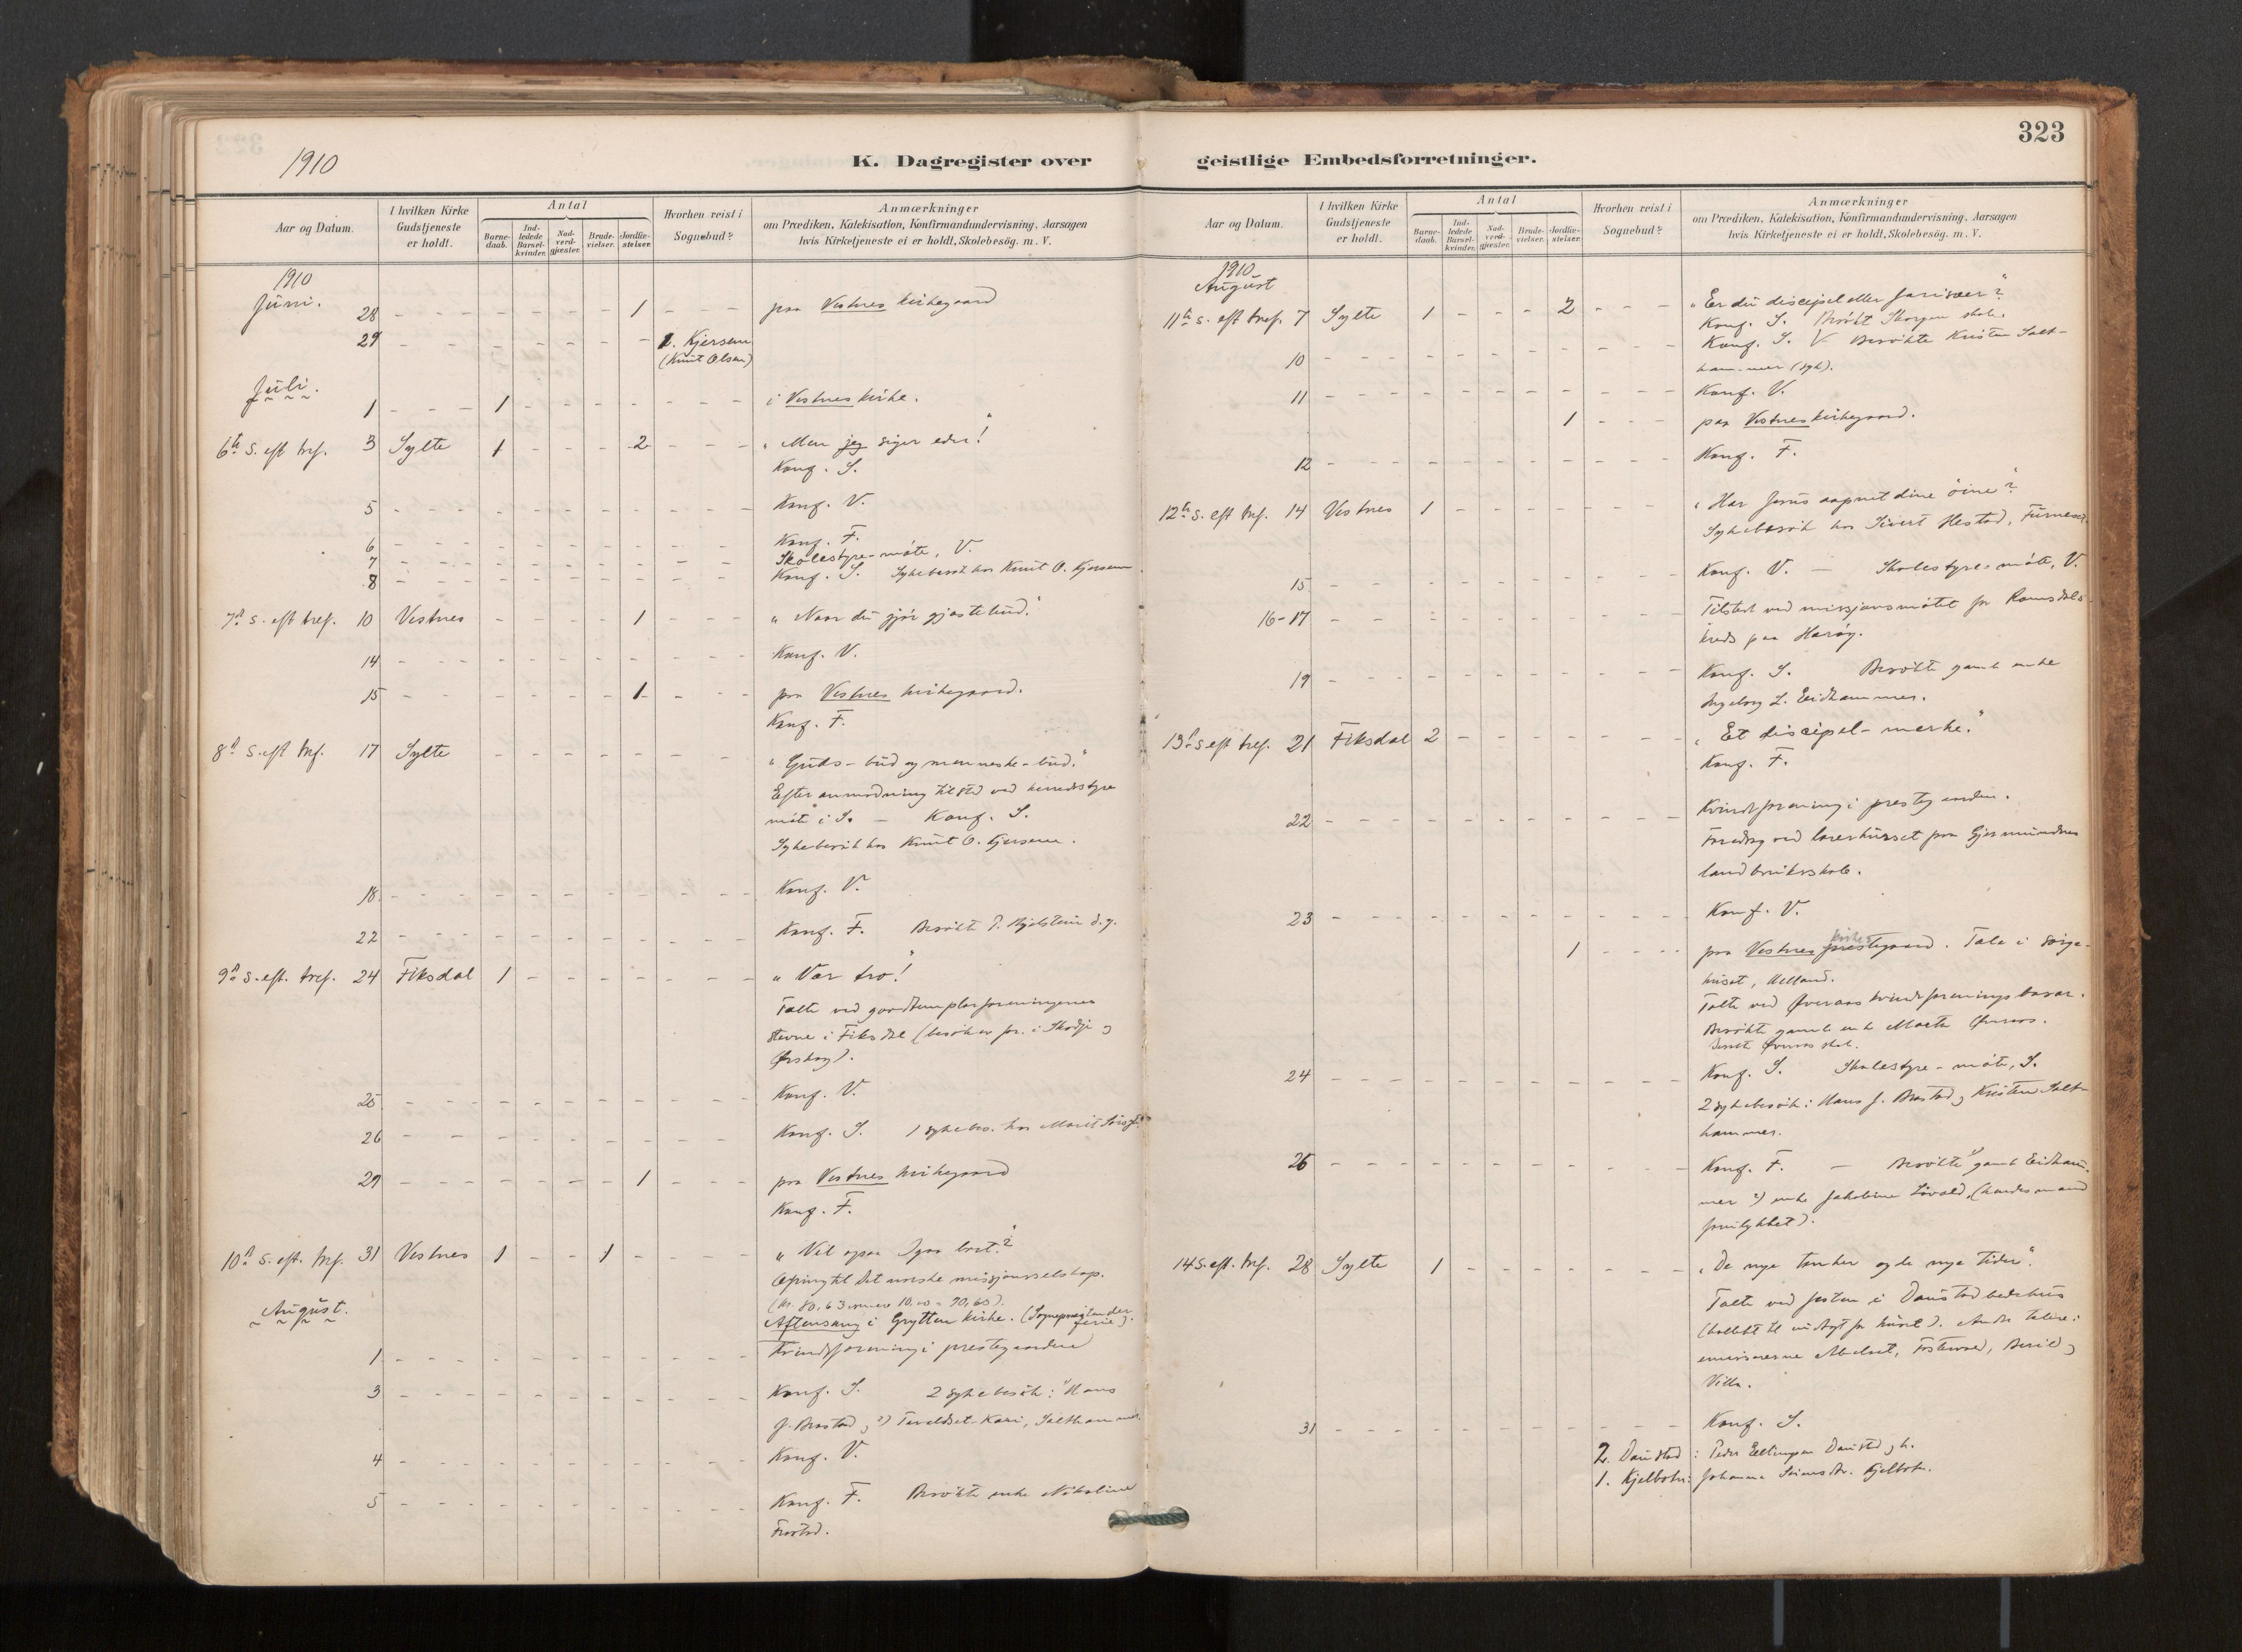 1910
K. Dagregister over
Aar og Datum.
I hvilken Kirke Gudstjeneste er holdt.
Antal
Barne-daab.
Ind-ledede Barsel-kvinder.
Nad-verd-gjester.
Brude-vielser.
Jordfæ-stelser.
Hvorhen reist i Sognebud?
Anmærkninger
om Prædiken, Katekisation, Konfirmandundervisning, Aarsagen
hvis Kirketjeneste ei er holdt, Skolebesög. m. V.
1910
Juni.
28 - - - - - - - 1 - - - paa Vestnes kirkegaard
29 - - - - - - - 1. Kjersem
(Knut Olsen)
Juli.
1 - - - 1 - - - - - - i Vestnes kirke.
6te S. eft tref. 3 Sylte 1 - - - 2 - - „Men jeg siger eder!"
Konf. S.
5 - - - - - - - - - Konf. V.
6 - - - - - - - - - Konf. F.
7 - - - - - - - - - Skolestyre-møte, V.
8 - - - - - - - - - Konf. S. Sykebesøk hos Knut O. Kjersem
7de S. eft tref. 10 Vestnes - - - - 1 - - - „Naar du gjør gjæstebud."
14 - - - - - - - - - Konf. V.
15 - - - - - - - 1 - - - paa Vestnes kirkegaard.
Konf. F.
8de S. eft tref. 17 Sylte - - - - - - - - „Guds-bud og menneske-bud."
Efter anmodning tilsted ved herredsstyre
møte i S. - Konf. S.
Sykebesøk hos Knut O. Kjersem.
18 - - - - - - - - - Konf. V.
22 - - - - - - - - - Konf. F. Besøkte P. Kjelstein d.y.
9de S. eft. tref. 24 Fiksdal 1 - - - - - - - „Vær tro!"
Talte ved goodtemplarforeningernes
stevne i Fiksdal (besøk av for. i Skodje og
Ørskog).
25 - - - - - - - - - Konf. V.
26 - - - - - - - - - Konf. S. 1 sykebes. hos Marit
29 - - - - - - - 1 - - - paa Vestnes kirkegaard
Konf. F.
10de S. eft. tref. 31 Vestnes 1 - - 1 - „Vil ogsaa I gaa bort?"
Ofring til Det norske missjonsselskap.
Aftensang i Grytten kirke. (Sognepresten der ferie).
August.
1 - - - - - - - - - Kvindeforening i prestegaarden
3 - - - - - - - - - Konf. S. 2 sykebesøk: 1) Hans
J. Brastad, 2) Kari, Salthammer.
4 - - - - - - - - - Konf. V.
5 - - - - - - - - - Konf. F. Besøkte enke Nikoline
323
geistlige Embedsforretninger.
Aar og Datum.
I hvilken Kirke Gudstjeneste er holdt.
Antal
Barne-daab.
Ind-ledede Barsel-kvinder.
Nad-verd-gjester.
Brude-vielser.
Jordfæ-stelser.
Hvorhen reist i Sognebud?
Anmærkninger
om Prædiken, Katekisation, Konfirmandundervisning, Aarsagen
hvis Kirketjeneste ei er holdt, Skolebesög. m. V.
1910
August
11te S. eft tref. 7 Sylte 1 - - - 2 - - - „Er du discipel eller farisæer?"
Konf. S. Besøkt Skorgen skole.
10 - - - - - - - - - Konf. S. Besøkte Kristen Salt-
hammer (syk).
11 - - - - - - - - - Konf. V.
1 - - - paa Vestnes kirkegaard.
12 - - - - - - - - - Konf. F.
12te S. eft tref. 14 Vestnes 1 - - - - - - - „Har Jesus aapnet dine øine"?
Sykebesøk hos Sivert Hestad, Furneset.
15 - - - - - - - - - Konf. V. - Skolestyre-møte, V.
16-17 - - - - - - - - Tilsted ved missjonsmøtet for Romsdals
kreds paa Harøy.
19 - - - - - - - - - Konf. S. Besøkte gamle enke
Ingeborg L. Eidhammer.
13de S. eft tref. 21 Fiksdal 2 - - - - - - - „Et discipel-merke."
Konf. F.
22 - - - - - - - - - Kvindeforening i prestegaarden.
Foredrag ved lærerkurset paa Gjermundnes
landbruksskole.
23 - - - - - - - - - Konf. V.
1 - - - - paa Vestnes prestegaard kirke. Tale i sørge-
huset, Helland.
Talte ved Øveraas kvindeforenings basar.
Besøkte gamle enke Marta Øveraas.
Besøkt Øveraas skole.
24 - - - - - - - - - Konf. S. Skolestyre-møte, S.
2 sykebesøk: Hans J. Brastad og Kristen Salt-
hammer.
26 - - - - - - - - - Konf. F. - Besøkte 1) gamle Eidham-
mer 2) enke Jakobine
14 S. eft. tref. 28 Sylte 1 - - - - - - - „De nye tanker og de nye tider".
Talte ved festen i Daustad bedehus
(kollekt til indtægt for huset). Andre talere:
emissærerne
Villa.
31 - - - - - - - - - Konf. S.
2. Daustad: Peder Eellingsen Daustad og h.
1. Kjelbotn: Johanna Kjelbotn.